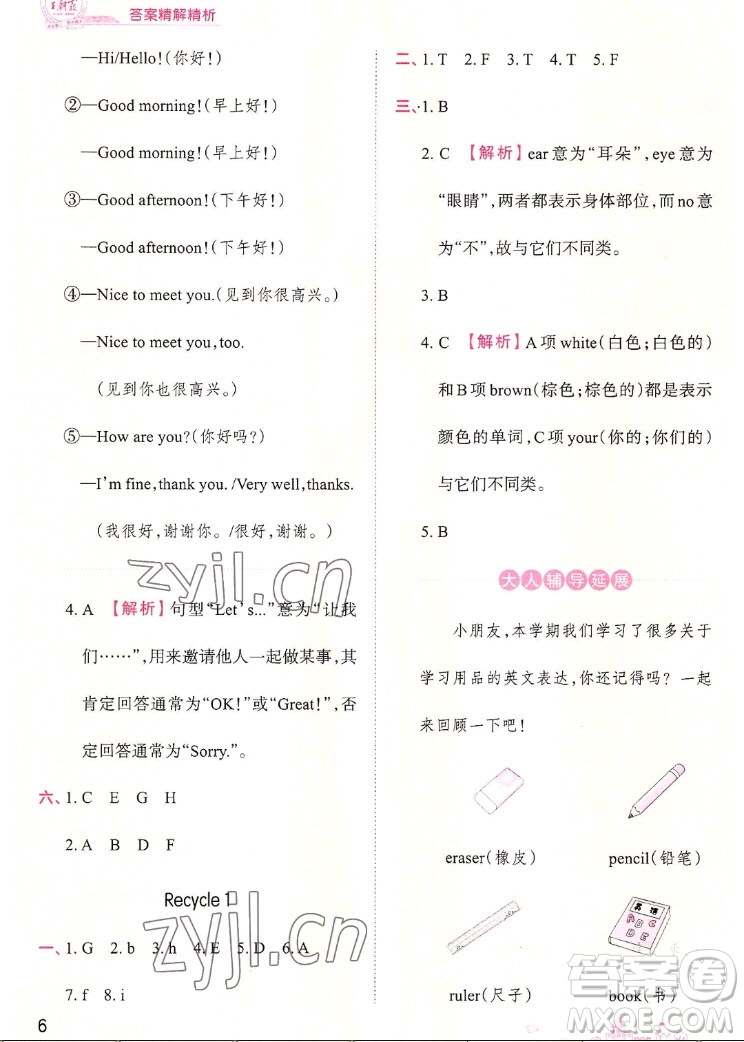 答案精解精析
—Hi/Hello!(你好!)
②—Good morning!(早上好!)
—Good morning!(早上好!)
③—Good afternoon!(下午好!)
—Good afternoon!(下午好!)
④—Nice to meet you.(见到你很高兴。)
—Nice to meet you,too.
(见到你也很高兴。)
⑤—How are you?(你好吗?)
—I'm fine,thank you./Very well,thanks.
(我很好,谢谢你。/很好,谢谢。)
4. A 【解析】句型“Let's...”意为“让我
们……”,用来邀请他人一起做某事,其
肯定回答通常为“OK!”或“Great!”,否
定回答通常为“Sorry.”。
六、1. C E G H
2. A B D F
Recycle 1
一、1. G 2. b 3. h 4. E 5. D 6. A
7. f 8. i
6
二、1. T 2. F 3. T 4. T 5. F
三、1. B
2. C 【解析】ear意为“耳朵”,eye意为
“眼睛”,两者都表示身体部位,而no意
为“不”,故与它们不同类。
3. B
4. C 【解析】A项white(白色;白色的)
和B项brown(棕色;棕色的)都是表示
颜色的单词,C项your(你的;你们的)
与它们不同类。
5. B
大人辅导延展
小朋友,本学期我们学习了很多关于
学习用品的英文表达,你还记得吗?一起
来回顾一下吧!
eraser(橡皮) pencil(铅笔)
英语
ABC
DE
ruler(尺子) book(书)
zyjl.cn
zyjl.cn
答案圈